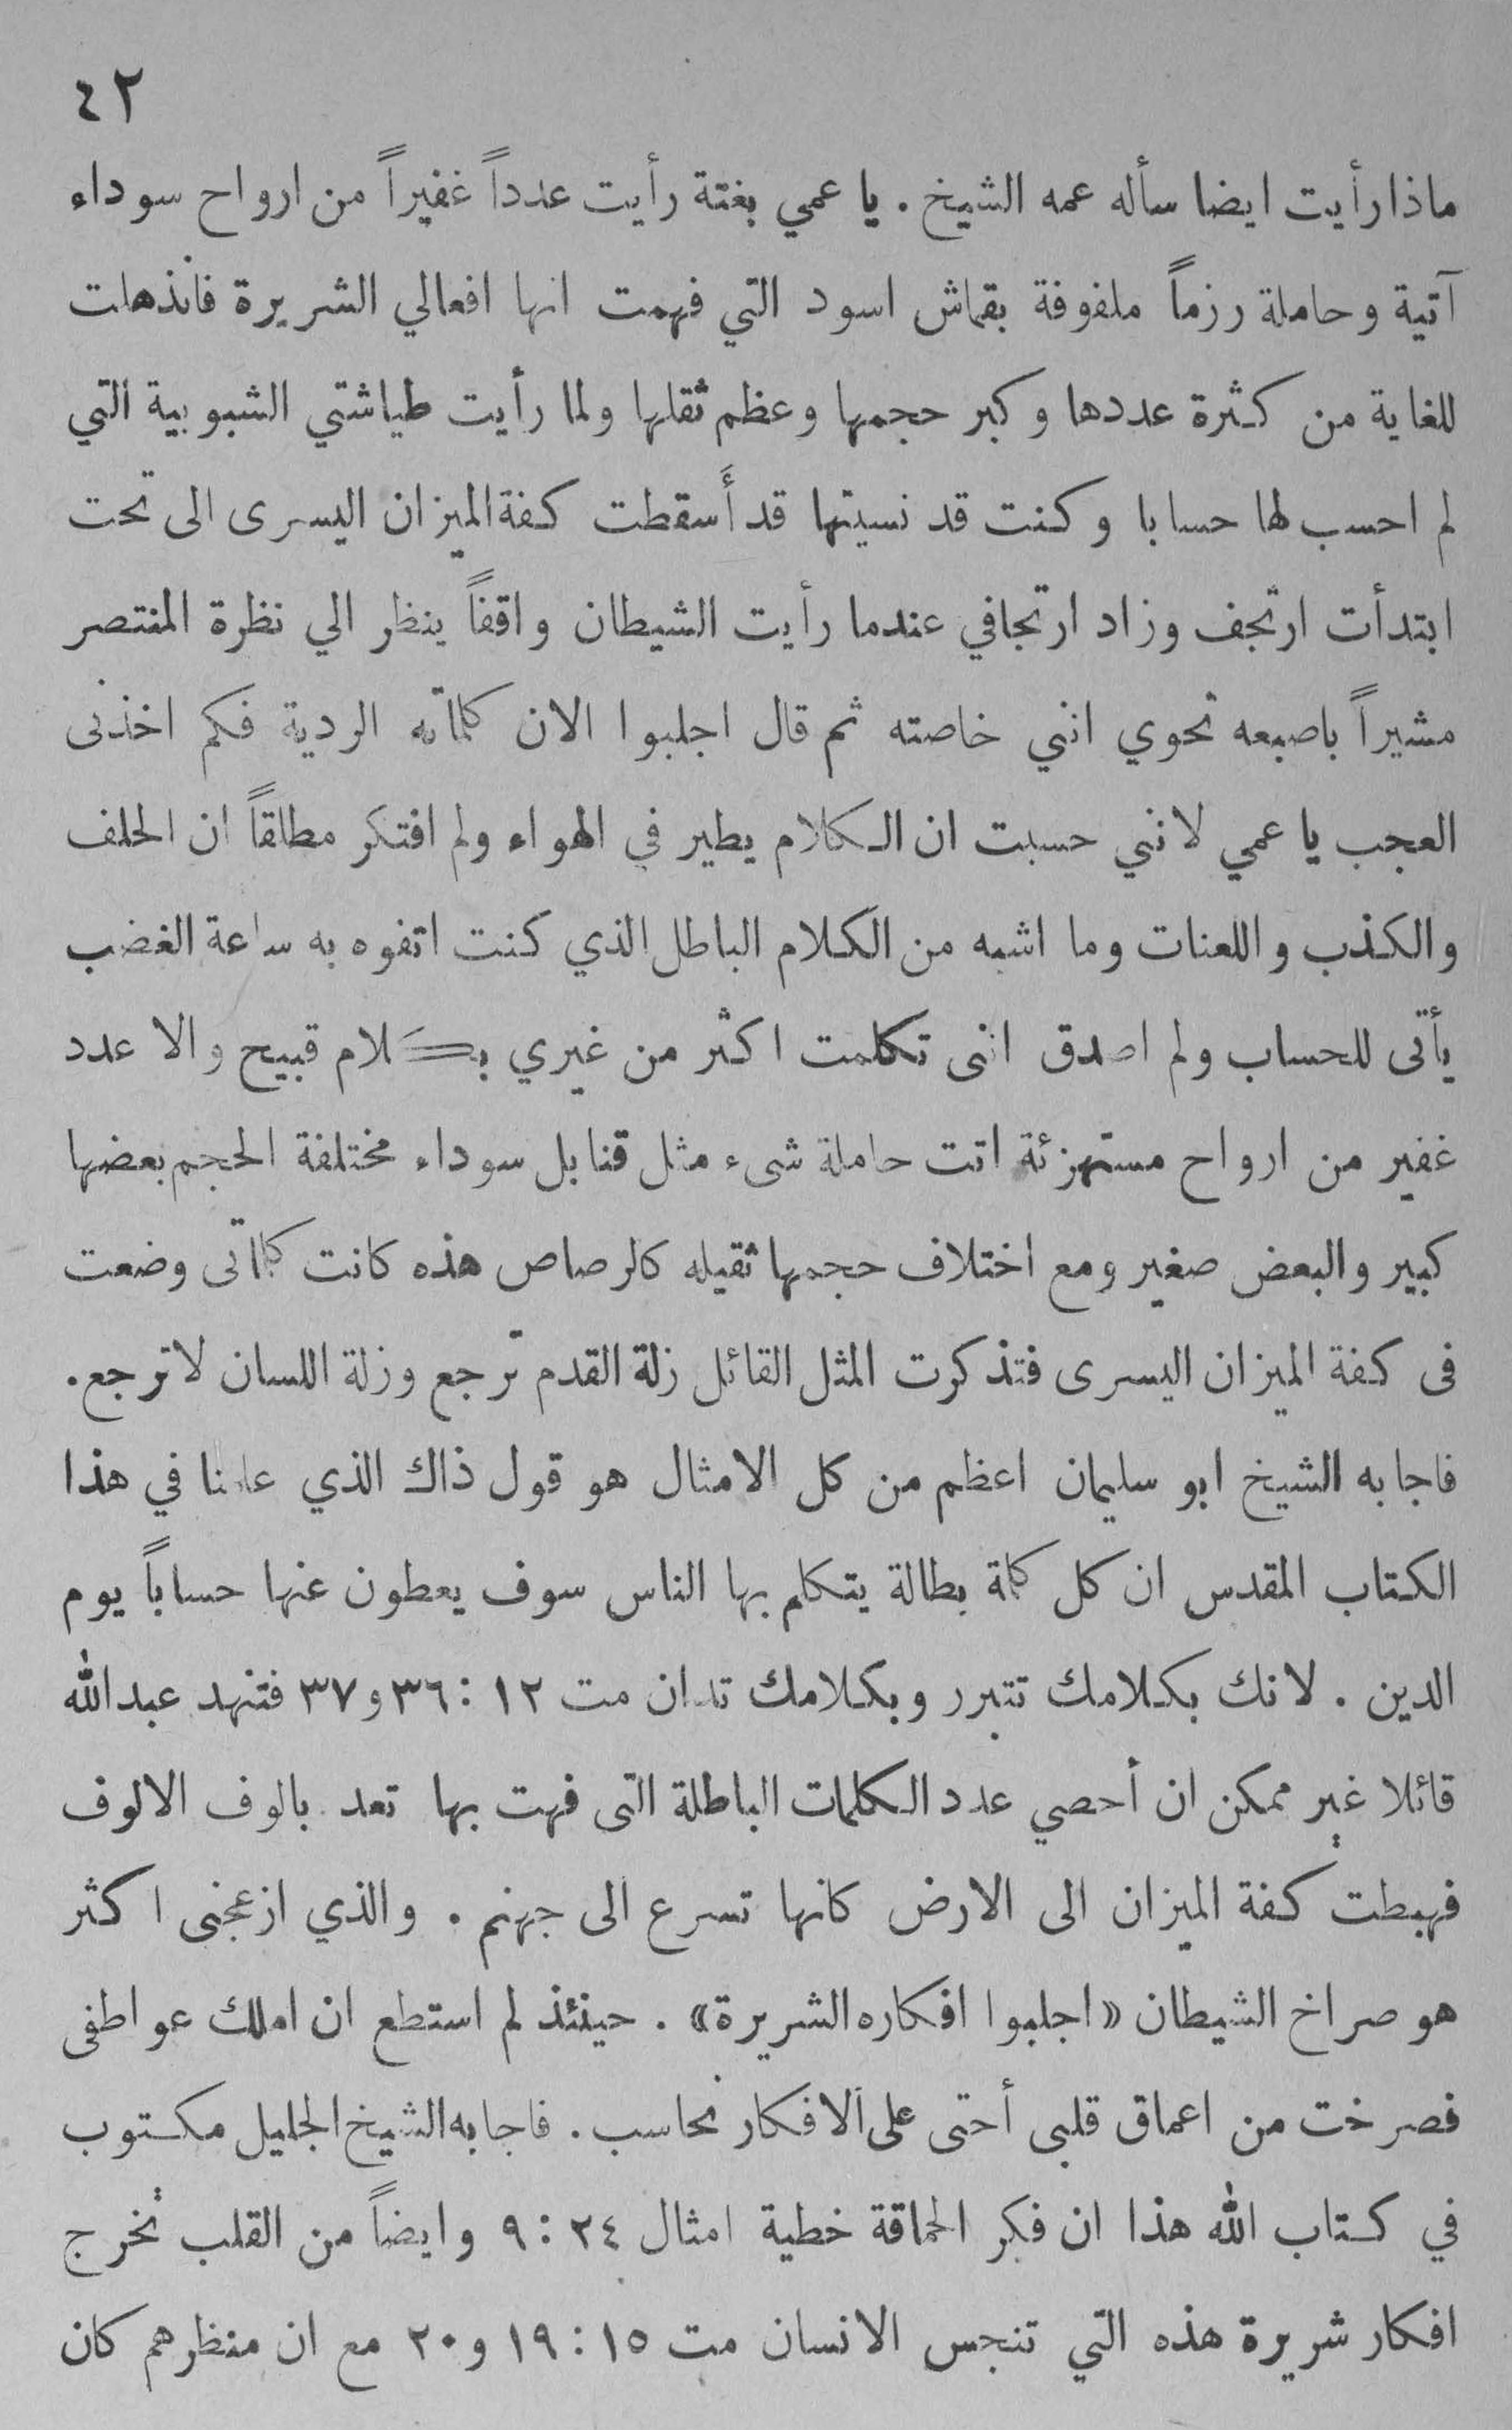 ٤٢
ماذا رأيت ايضا سأله عمه الشيخ . يا عمي بغتة رأيت عدداً غفيراً من ارواح سوداء
آتية وحاملة رزماً ملفوفة بقماش اسود التي فهمت انها افعالي الشريرة فانذهلت
للغاية من كثرة عددها وكبر حجمها وعظم ثقلها ولما رأيت طياشتي الشبوبية التي
لم احسب لها حسابا وكنت قد نسيتها قد أَسقطت كفة الميزان اليسرى الى تحت
ابتدأت ارتجف وزاد ارتجافي عندما رأيت الشيطان واقفاً ينظر الي نظرة المنتصر
مشيراً باصبعه نحوي انني خاصته ثم قال اجلبوا الان كلماته الردية فكم اخذنى
العجب يا عمي لانني حسبت ان الكلام يطير في الهواء ولم افتكر مطلقاً ان الحلف
والكذب واللعنات وما اشبه من الكلام الباطل الذي كنت اتفوه به ساعة الغضب
يأتى للحساب ولم اصدق اننى تكلمت اكثر من غيري بكَلام قبيح والا عدد
غفير من ارواح مستهزئة اتت حاملة شىء مثل قنابل سوداء مختلفة الحجم بعضها
كبير والبعض صغير ومع اختلاف حجمها ثقيله كالرصاص هذه كانت كلماتى وضعت
فى كفة الميزان اليسرى فتذكرت المثل القائل زلة القدم ترجع وزلة اللسان لا ترجع .
فاجابه الشيخ ابو سليمان اعظم من كل الامثال هو قول ذاك الذي علمنا في هذا
الكتاب المقدس ان كل كلمة بطالة يتكلم بها الناس سوف يعطون عنها حساباً يوم
الدين . لانك بكلامك تتبرر وبكلامك تدان مت ١٢ : ٣٦ و ٣٧ فتنهد عبد الله
قائلا غير ممكن ان أحصي عدد الكلمات الباطلة التى فهت بها تعد بالوف الالوف
فهبطت كفة الميزان الى الارض كانها تسرع الى جهنم . والذي ازعجنى اكثر
هو صراخ الشيطان «اجلبوا افكاره الشريرة» . حينئذ لم استطع ان املك عواطفى
فصرخت من اعماق قلبى أحتى على الافكار نحاسب . فاجابه الشيخ الجليل مكتوب
في كتاب الله هذا ان فكر الحماقة خطية امثال ٢٤ : ٩ وايضاً من القلب تخرج
افكار شريرة هذه التي تنجس الانسان مت ١٥ : ١٩ و ٢٠ مع ان منظرهم كان